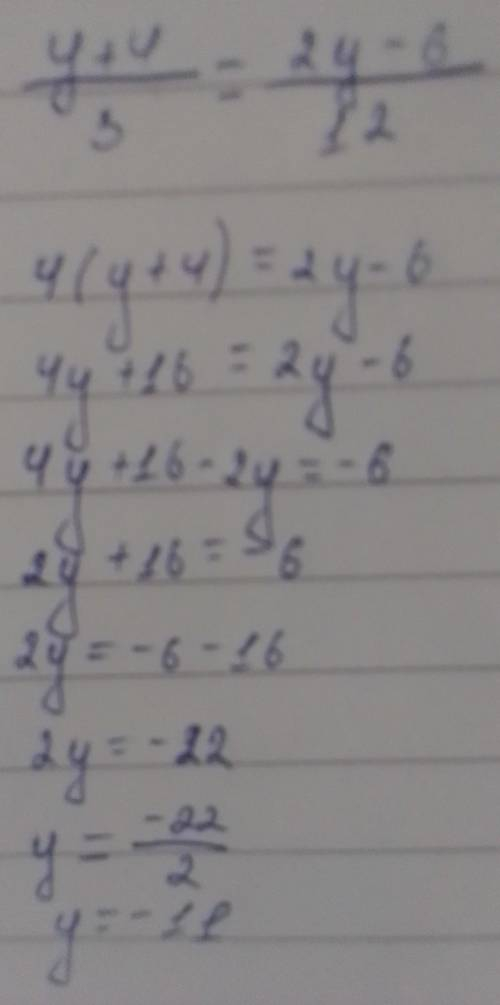 y+4/3 = 2y-6/12
4(y+4) = 2y-6
4y+16 = 2y-6
4y+16-2y=-6
2y+16=-6
2y=-6-16
2y=-22
y=-22/2
y=-11